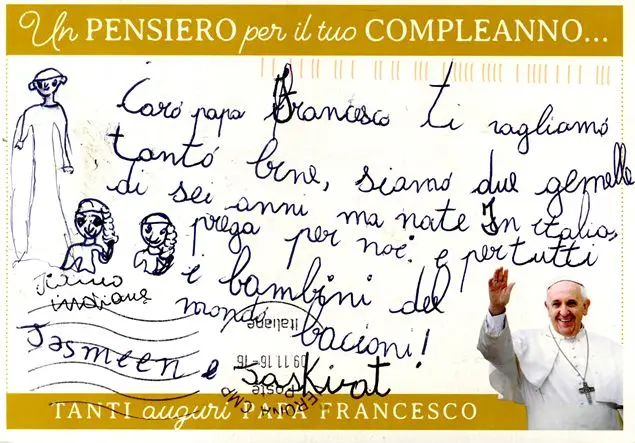 Un PENSIERO per il tuo COMPLEANNO...
Caro papa Francesco ti vogliamo
tanto bene, siamo due gemelle
di sei anni ma nate In italia,
prega per noi e per tutti
i bambini del
mondo bacioni!
Siamo
indiane
Jasmeen e Jaskirat
Poste
Italiane
09.11.16-16
CMP
TANTI auguri PAPA FRANCESCO